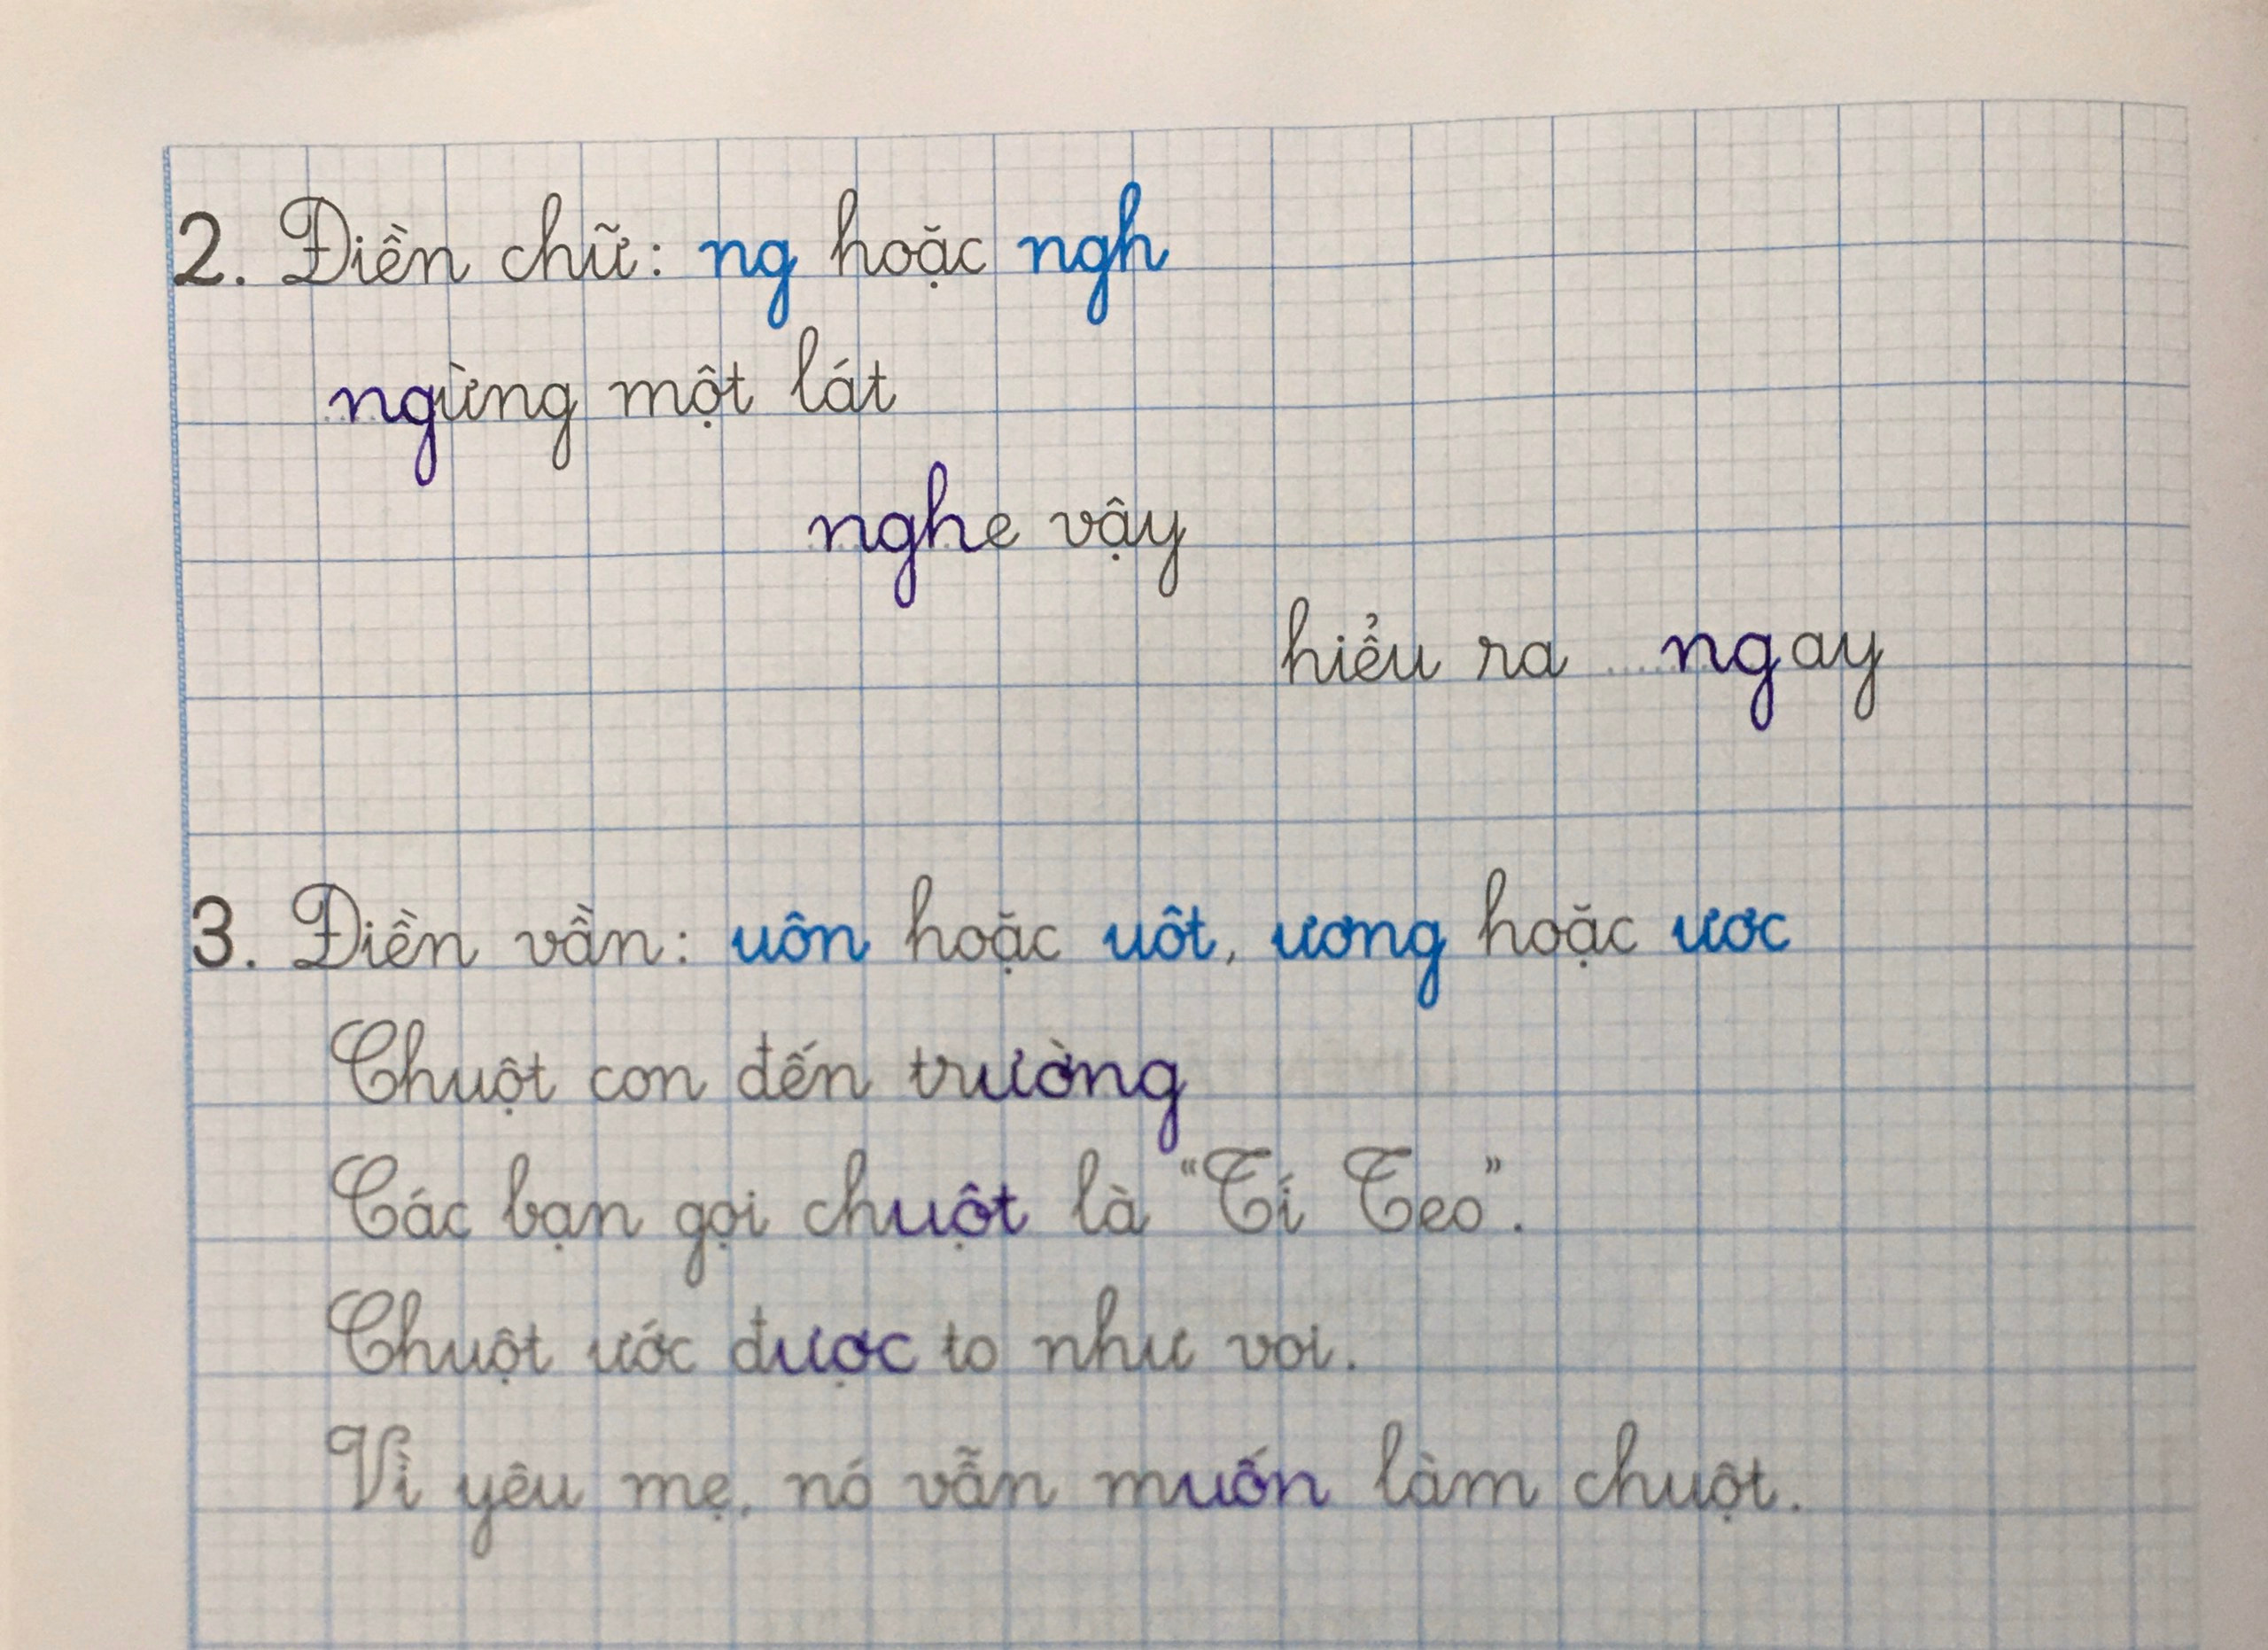 2. Điền chữ: ng hoặc ngh
ngừng một lát
nghe vậy
hiểu ra ... ngay
3. Điền vần: uôn hoặc uôt, ương hoặc ươc
Chuột con đến trường
Các bạn gọi chuột là "Tí Teo".
Chuột ước được to như voi.
Vì yêu mẹ, nó vẫn muốn làm chuột.